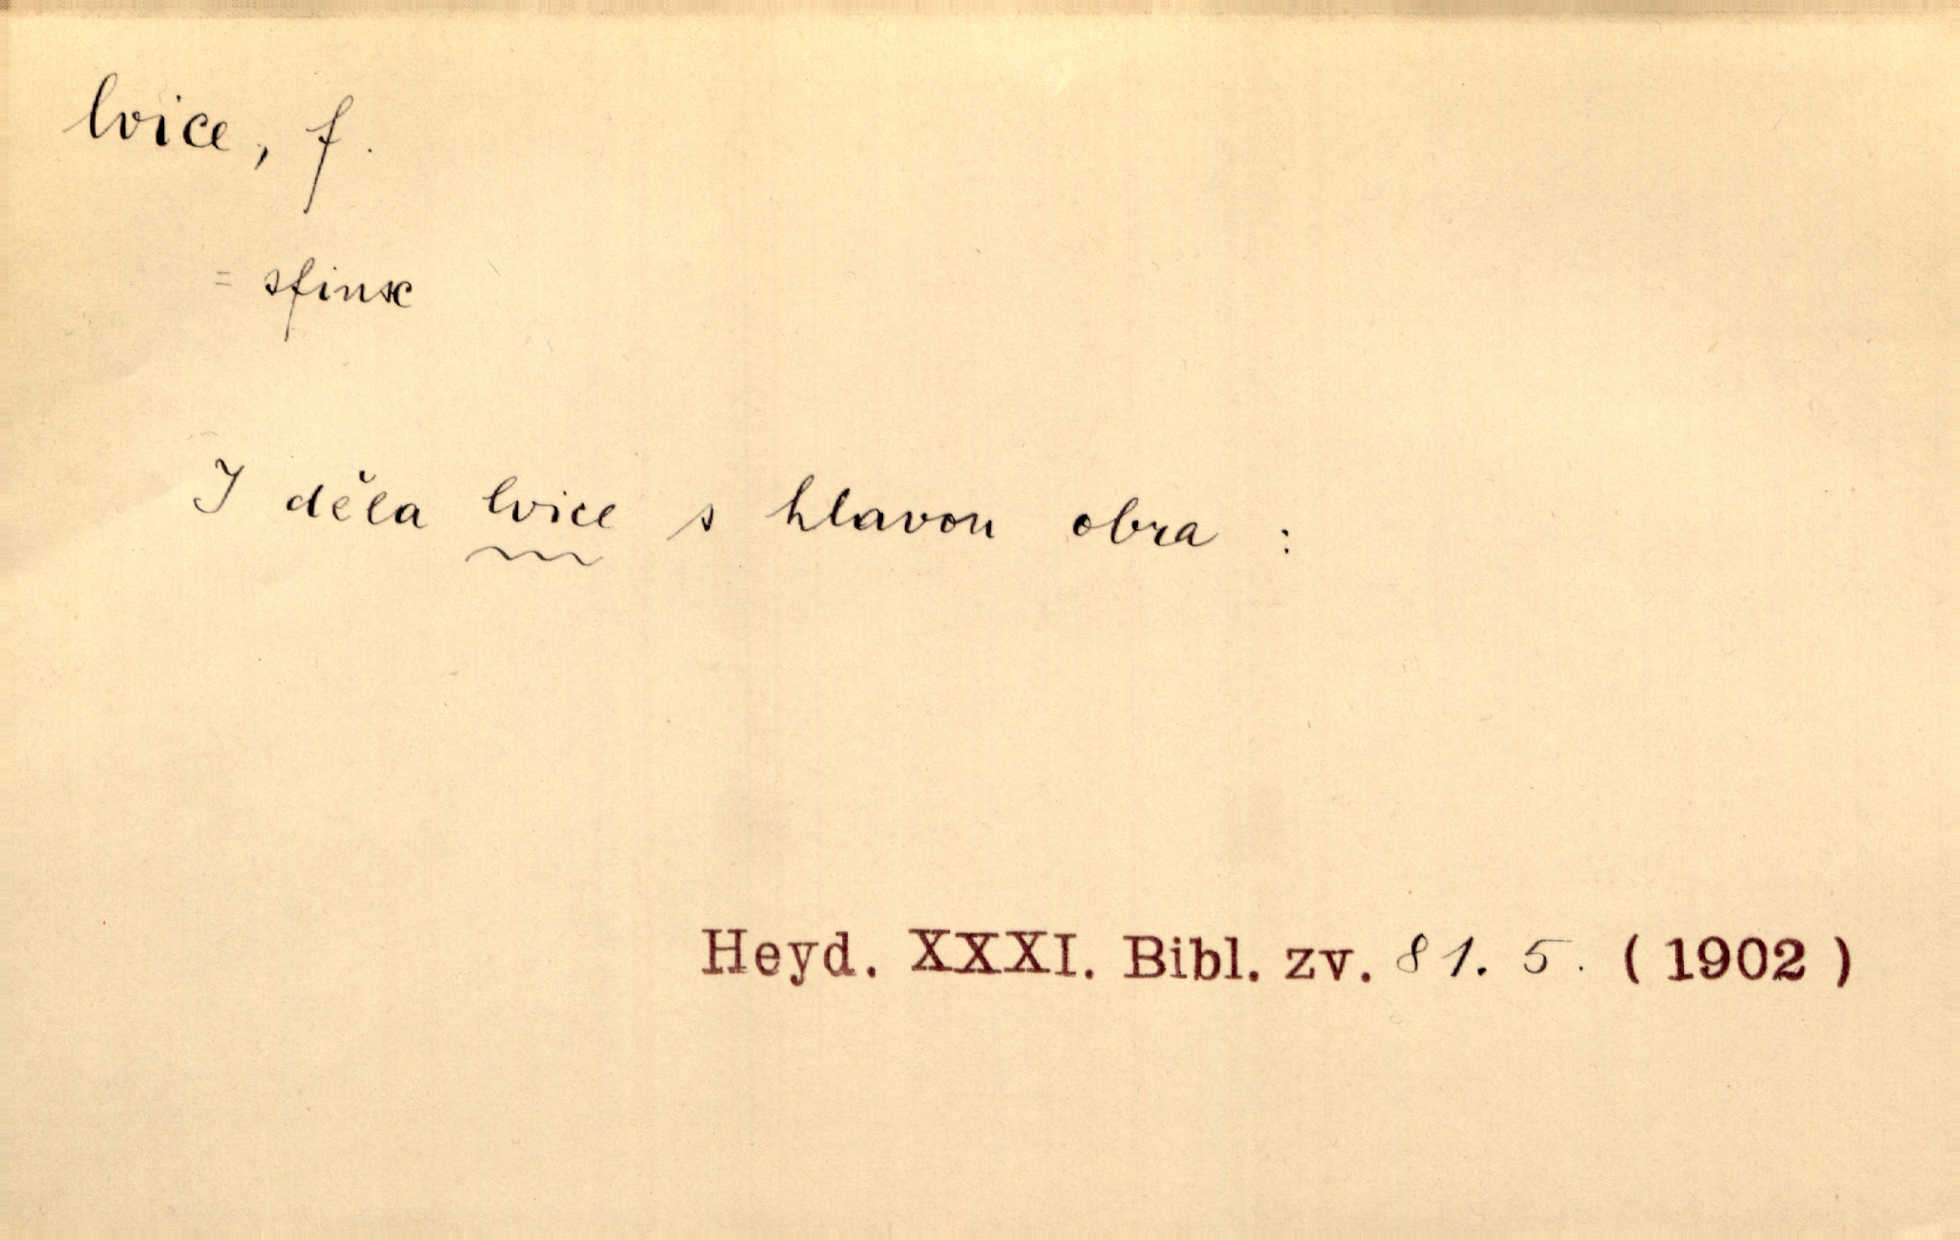 lvice, f.
= sfinx
I děla lvice s hlavou obra :
Heyd. XXXI. Bibl. zv. 81. 5. (1902)